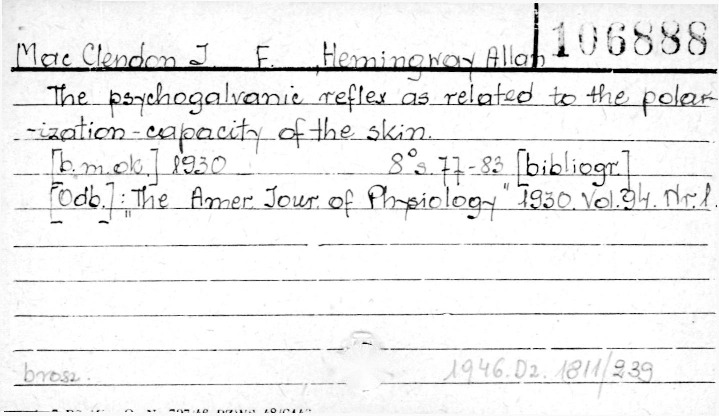 106888
Mac Clendon J. F., Hemingway Allan
The psychogalvanic reflex as related to the polar-
-ization-capacity of the skin.
[b.m.ok.] 1930 8° s. 77-83 [bibliogr.]
[Odb.]: "The Amer. Jour. of Physiology" 1930. Vol. 94. Nr. 1.
brosz. 1946.Dz. 1811/239